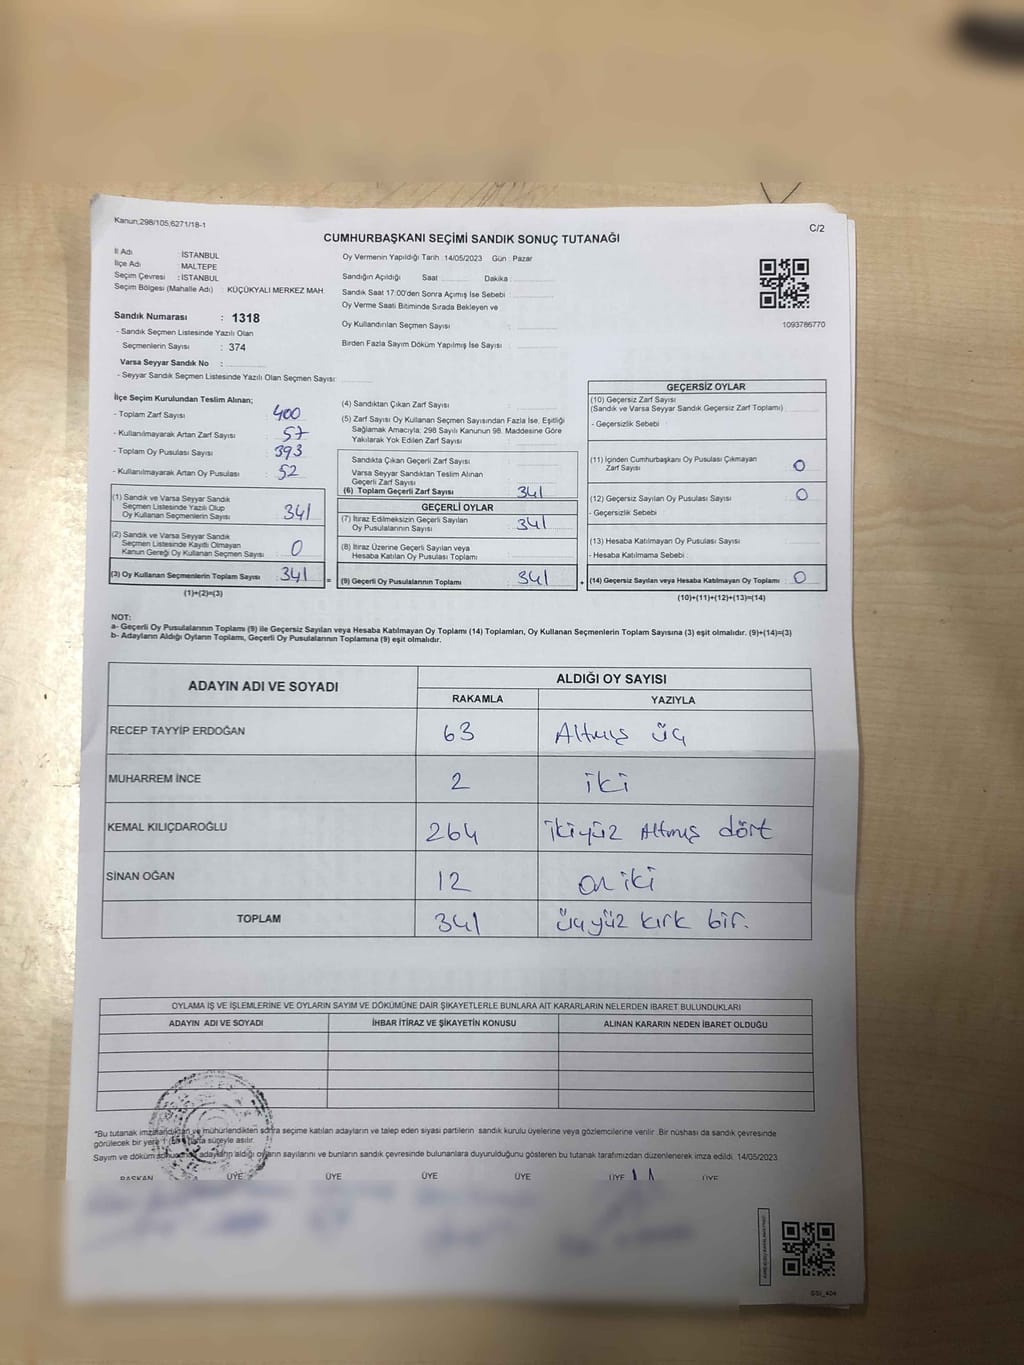 Kanun,298/105,6271/18-1
C/2
CUMHURBAŞKANI SEÇİMİ SANDIK SONUÇ TUTANAĞI
İl Adı : İSTANBUL
İlçe Adı : MALTEPE
Seçim Çevresi : İSTANBUL
Seçim Bölgesi (Mahalle Adı) : KÜÇÜKYALI MERKEZ MAH.
Sandık Numarası : 1318
- Sandık Seçmen Listesinde Yazılı Olan
Seçmenlerin Sayısı : 374
Varsa Seyyar Sandık No :
- Seyyar Sandık Seçmen Listesinde Yazılı Olan Seçmen Sayısı:
Oy Vermenin Yapıldığı Tarih : 14/05/2023 Gün : Pazar
Sandığın Açıldığı Saat Dakika
Sandık Saat 17:00'den Sonra Açımış İse Sebebi :
Oy Verme Saati Bitiminde Sırada Bekleyen ve
Oy Kullandırılan Seçmen Sayısı :
Birden Fazla Sayım Döküm Yapılmış İse Sayısı :
1093786770
İlçe Seçim Kurulundan Teslim Alınan;
- Toplam Zarf Sayısı : 400
- Kullanılmayarak Artan Zarf Sayısı : 57
- Toplam Oy Pusulası Sayısı : 393
- Kullanılmayarak Artan Oy Pusulası : 52
(1) Sandık ve Varsa Seyyar Sandık
Seçmen Listesinde Yazılı Olup
Oy Kullanan Seçmenlerin Sayısı : 341
(2) Sandık ve Varsa Seyyar Sandık
Seçmen Listesinde Kayıtlı Olmayan
Kanun Gereği Oy Kullanan Seçmen Sayısı : 0
(3) Oy Kullanan Seçmenlerin Toplam Sayısı : 341
(1)+(2)=(3)
(4) Sandıktan Çıkan Zarf Sayısı :
(5) Zarf Sayısı Oy Kullanan Seçmen Sayısından Fazla İse, Eşitliği
Sağlamak Amacıyla; 298 Sayılı Kanunun 98. Maddesine Göre
Yakılarak Yok Edilen Zarf Sayısı :
Sandıkta Çıkan Geçerli Zarf Sayısı :
Varsa Seyyar Sandıktan Teslim Alınan
Geçerli Zarf Sayısı :
(6) Toplam Geçerli Zarf Sayısı : 341
GEÇERLİ OYLAR
(7) İtiraz Edilmeksizin Geçerli Sayılan
Oy Pusulalarının Sayısı : 341
(8) İtiraz Üzerine Geçerli Sayılan veya
Hesaba Katılan Oy Pusulası Toplamı :
= (9) Geçerli Oy Pusulalarının Toplamı : 341
GEÇERSİZ OYLAR
(10) Geçersiz Zarf Sayısı
(Sandık ve Varsa Seyyar Sandık Geçersiz Zarf Toplamı) :
- Geçersizlik Sebebi :
(11) İçinden Cumhurbaşkanı Oy Pusulası Çıkmayan
Zarf Sayısı : 0
(12) Geçersiz Sayılan Oy Pusulası Sayısı : 0
- Geçersizlik Sebebi :
(13) Hesaba Katılmayan Oy Pusulası Sayısı :
- Hesaba Katılmama Sebebi :
+ (14) Geçersiz Sayılan veya Hesaba Katılmayan Oy Toplamı : 0
(10)+(11)+(12)+(13)=(14)
NOT:
a- Geçerli Oy Pusulalarının Toplamı (9) ile Geçersiz Sayılan veya Hesaba Katılmayan Oy Toplamı (14) Toplamları, Oy Kullanan Seçmenlerin Toplam Sayısına (3) eşit olmalıdır. (9)+(14)=(3)
b- Adayların Aldığı Oyların Toplamı, Geçerli Oy Pusulalarının Toplamına (9) eşit olmalıdır.
ADAYIN ADI VE SOYADI ALDIĞI OY SAYISI
RAKAMLA YAZIYLA
RECEP TAYYİP ERDOĞAN 63 Altmış üç
MUHARREM İNCE 2 iki
KEMAL KILIÇDAROĞLU 264 ikiyüz Altmış dört
SİNAN OĞAN 12 on iki
TOPLAM 341 üçyüz kırk bir.
OYLAMA İŞ VE İŞLEMLERİNE VE OYLARIN SAYIM VE DÖKÜMÜNE DAİR ŞİKAYETLERLE BUNLARA AİT KARARLARIN NELERDEN İBARET BULUNDUKLARI
ADAYIN ADI VE SOYADI İHBAR İTİRAZ VE ŞİKAYETİN KONUSU ALINAN KARARIN NEDEN İBARET OLDUĞU
*Bu tutanak imzalandıktan ve mühürlendikten sonra seçime katılan adayların ve talep eden siyasi partilerin sandık kurulu üyelerine veya gözlemcilerine verilir. Bir nüshası da sandık çevresinde
görülecek bir yere 1 hafta süreyle asılır.
Sayım ve döküm sonucunda adayların aldığı oyların sayılarını ve bunların sandık çevresinde bulunanlara duyurulduğunu gösteren bu tutanak tarafımızdan düzenlenerek imza edildi. 14/05/2023
BAŞKAN ÜYE ÜYE ÜYE ÜYE ÜYE ÜYE